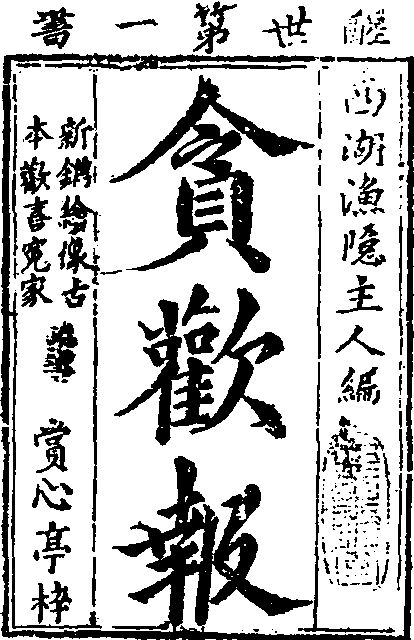 醒世第一書
西湖漁隱主人編
貪歡報
新鐫繪像古
本歡喜冤家
賞心亭梓